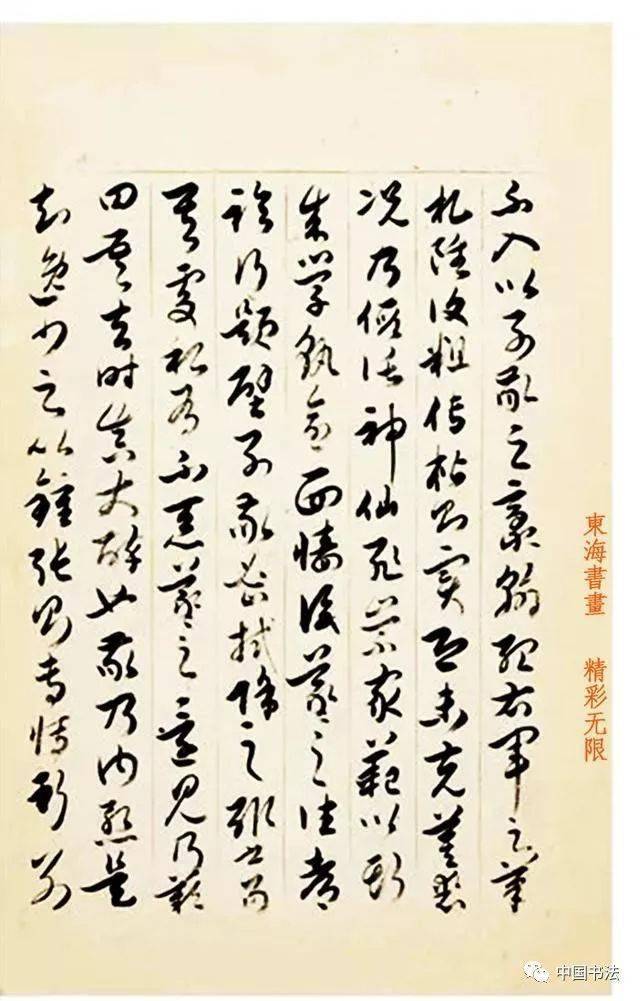 不入以子敬之豪翰紹右軍之筆
札雖復粗傳楷則實恐未克箕裘
況乃假託神仙恥崇家範以斯
成學孰愈面牆後羲之往都
臨行題壁子敬密拭除之輒書易
其處私為不惡羲之還見乃歎
曰吾去時真大醉也敬乃內慙是
知逸少之比鍾張則專博斯別
東海書畫 精彩无限
中国书法